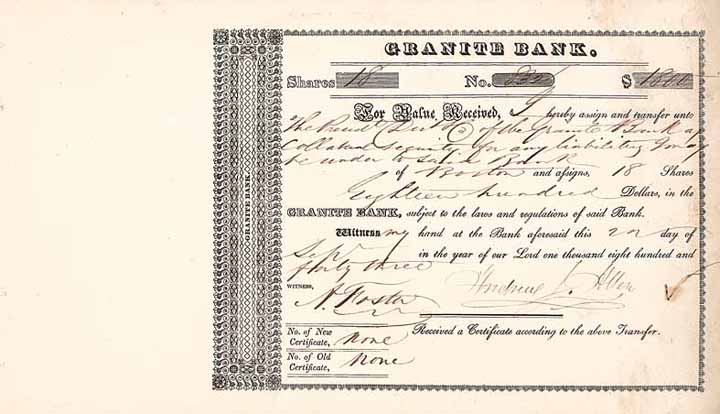 GRANITE BANK.
Shares 18 No. 232 $ 1800
For Value Received, I hereby assign and transfer unto
The Presdt. Dirs & Co of the Granite Bank as
Collateral Security for any liabilities I may
be under to said Bank
of Boston and assigns, 18 Shares
Eighteen hundred Dollars, in the
GRANITE BANK, subject to the laws and regulations of said Bank.
Witness my hand at the Bank aforesaid this 20 day of
Sepr in the year of our Lord one thousand eight hundred and
forty three
WITNESS, Andrew J. Allen
A. Foster
Received a Certificate according to the above Transfer.
No. of New
Certificate, None
No. of Old
Certificate, None
GRANITE BANK.